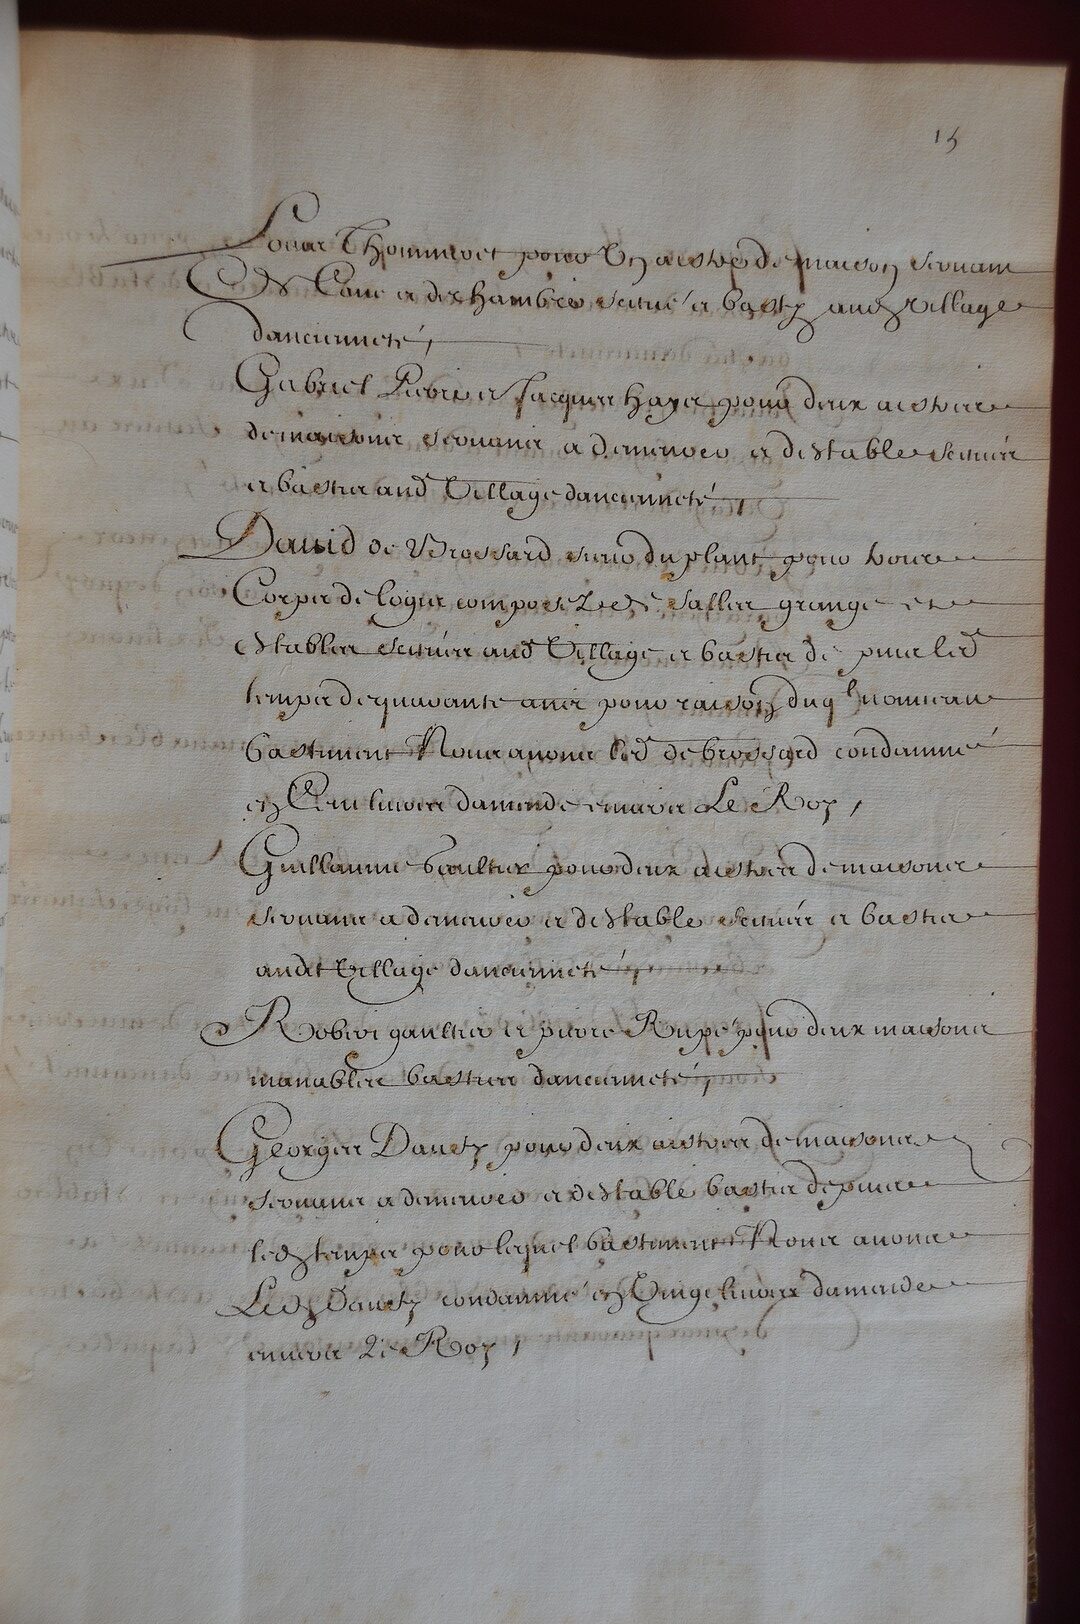 15
Thommeret pour un aistre de maison servant
de Cave et de chambre scitué et basty aud village
d'ancienneté,
Gabriel Pierre et Jacques haye pour deux aistres
de maisons servans a demeurer et destable scituéz
et bastis aud Village dancienneté,
David de Brossard sieur du plant pour trois
Corps de logis composez de salles grange et
estables scituéz aud Village et bastis depuis led
temps de quarante ans pour raison duql nouveau
bastiment Nous avons led de brossard condamné
en livres damende envers Le Roy,
Guillaume Gaultier pour deux aistres de maisons
servans a demeurer et destable scituéz et bastis
audt Village dancienneté,
Robert gaultier et pierre Rupé pour deux maisons
manables basties dancienneté,
Georges Dauty pour deux aistres de maisons
servans a demeurer et destable bastis depuis
led temps pour lequel bastiment Nous avons
Led Dauty condamné en Vingt livres damende
envers Le Roy,